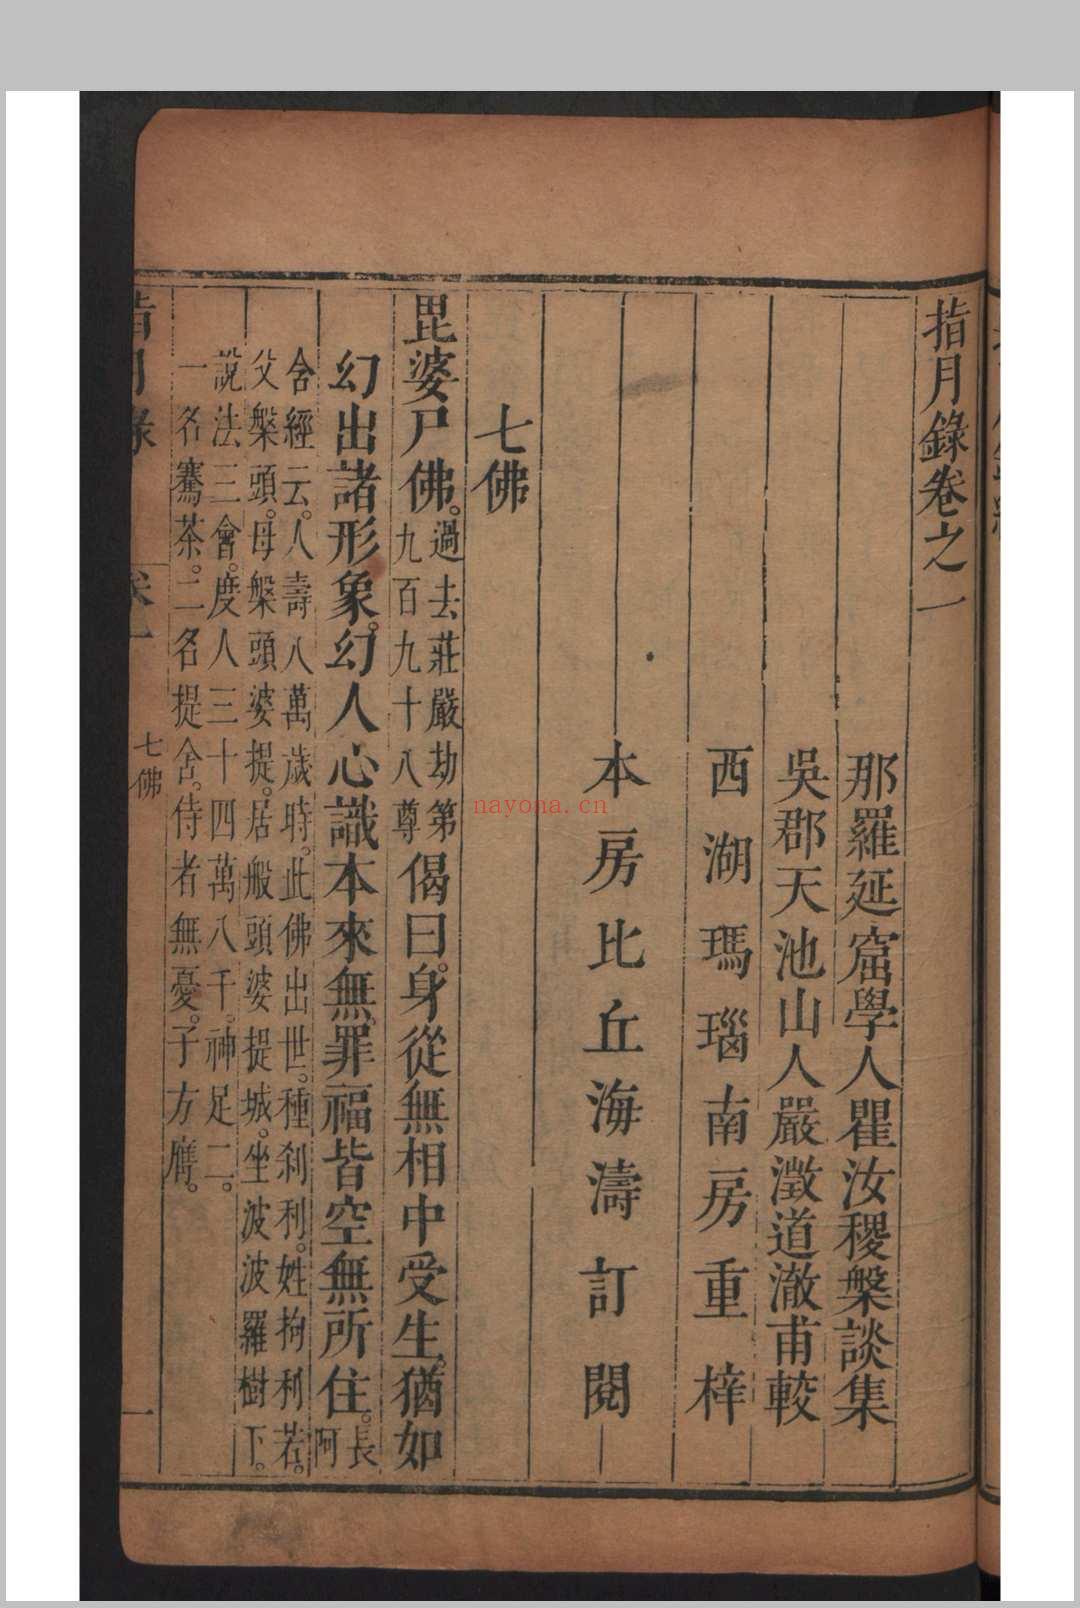 指月錄卷之一
那羅延窟學人瞿汝稷槃談集
吳郡天池山人嚴澂道澈甫較
西湖瑪瑙南房重梓
本房比丘海濤訂閱
七佛
毘婆尸佛。過去莊嚴劫第九百九十八尊偈曰。身從無相中受生。猶如
幻出諸形象。幻人心識本來無。罪福皆空無所住。長阿
含經云。人壽八萬歲時。此佛出世。種刹利。姓拘利若。
父槃頭。母槃頭婆提。居般頭婆提城。坐波波羅樹下。
說法三會。度人三十四萬八千。神足二。
一名騫茶。二名提舍。侍者無憂。子方膺。
七佛
一
nayona.cn